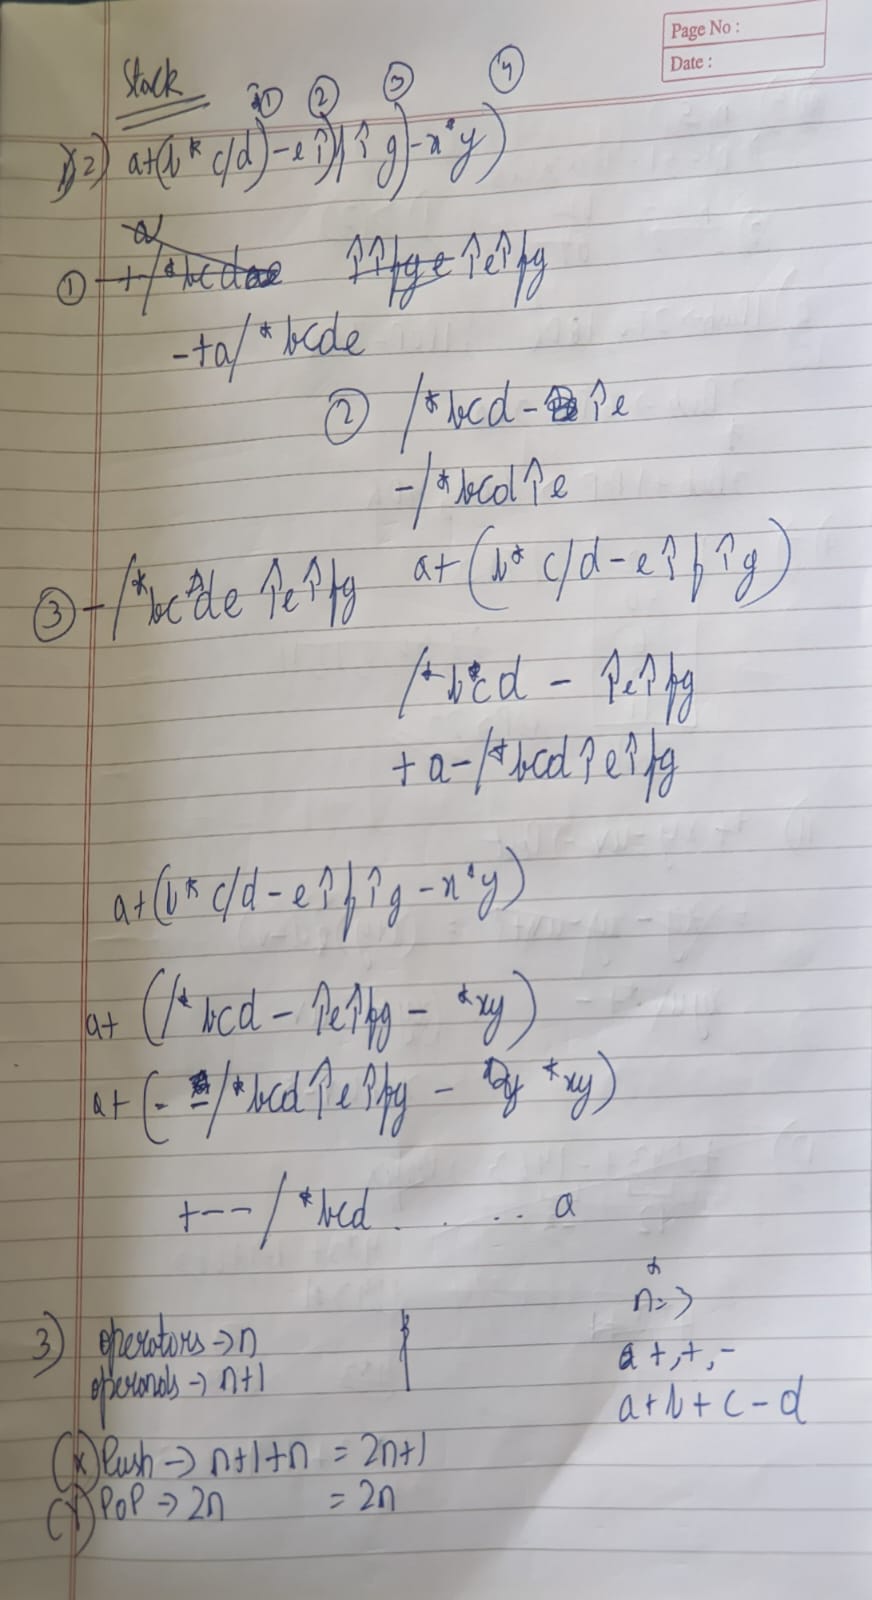 Page No :
Date :
Stack
① ② ③ ④
2) a+(b* c/d)-e↑)f↑g)-x*y)
①
↑e↑fg
-+a/*bcde
② /*bcd- ↑e
-/*bcd↑e
③ -/*bcde ↑e↑fg a+(b* c/d-e↑f↑g)
/*bcd - ↑e↑fg
+a-/*bcd↑e↑fg
a+(b* c/d-e↑f↑g-x*y)
a+ (/*bcd - ↑e↑fg - *xy)
a+ (- -/*bcd↑e↑fg - *xy)
+--/*bcd . . . . . a
3) operators → n
operands → n+1
n=3
+,+,-
a+b+c-d
(X) Push → n+1+n = 2n+1
(Y) POP → 2n = 2n